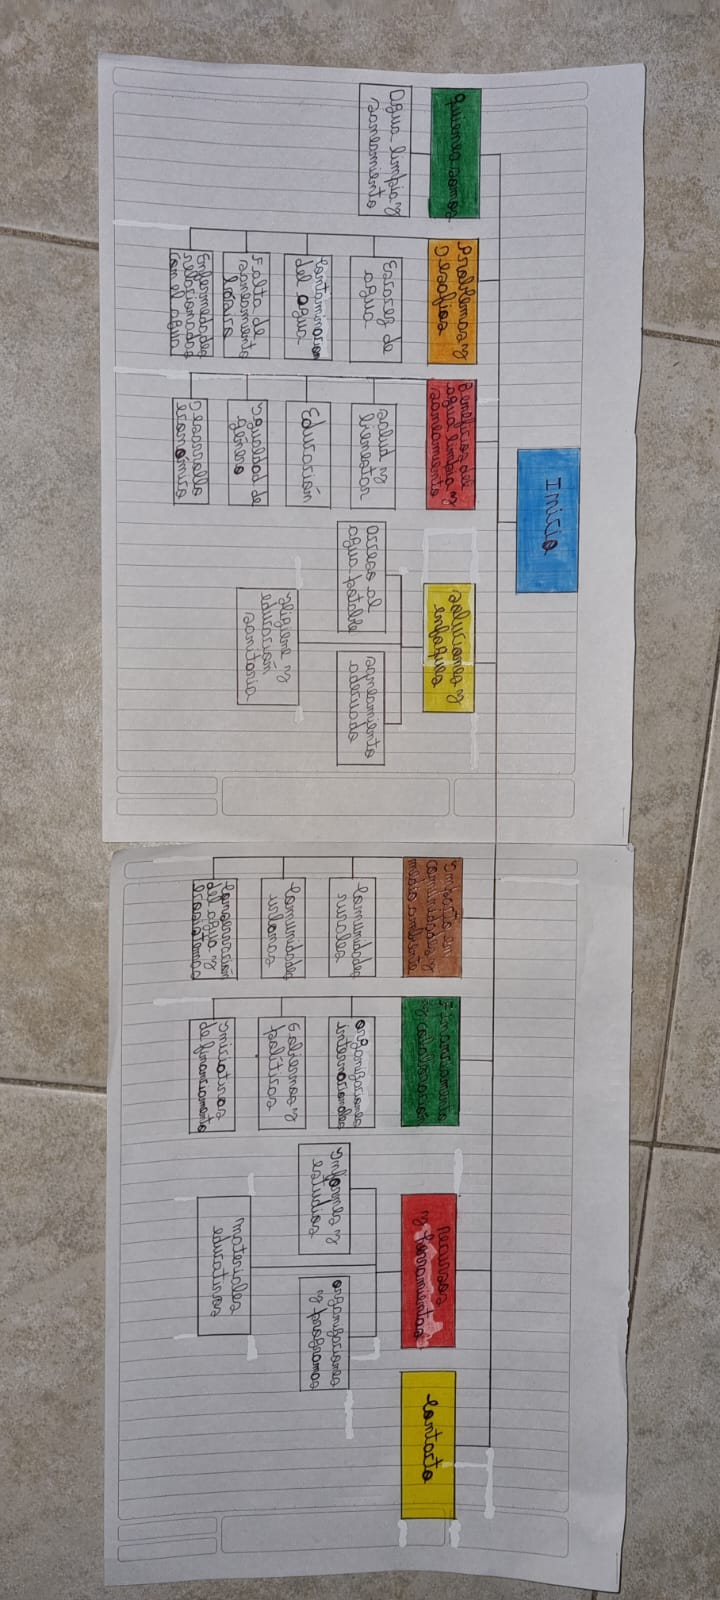 Inicio
quienes somos
Agua limpia y
saneamiento
Problemas y
Desafios
Escasez de
agua
Contaminacion
del agua
Falta de
saneamiento
básico
Enfermedades
relacionadas
con el agua
Beneficios del
agua limpia y
saneamiento
salud y
bienestar
Educación
Igualdad de
género
Desarrollo
económico
soluciones y
enfoques
acceso la
agua potable
saneamiento
adecuado
Higiene y
educación
sanitaria
Impacto en
comunidades y
medio ambiente
Comunidades
rurales
Comunidades
urbanas
Conservación
del agua y
ecosistemas
Financiamiento
y colaboración
organizaciones
internacionales
Gobiernos y
políticas
Iniciativas
de financiamento
recursos
y herramientas
Informes y
estudios
organizaciones
y programas
materiales
educativos
Contacto